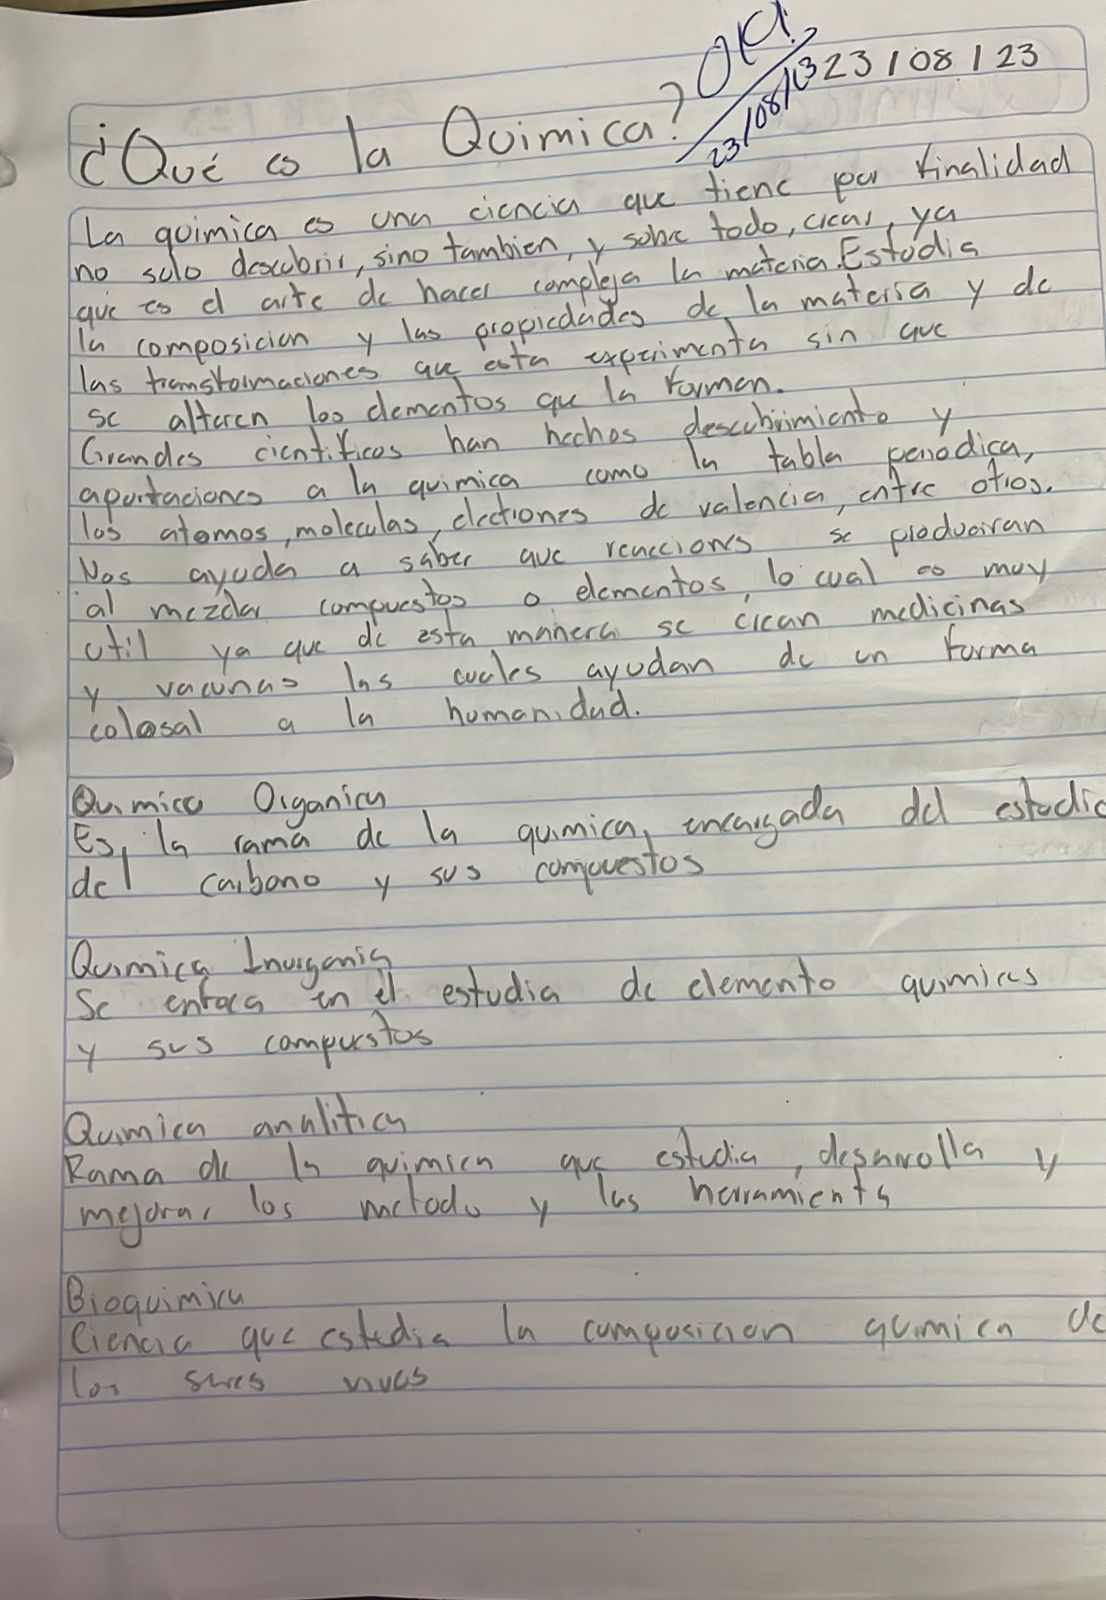 OK!
23/08/23
23/08/23
¿Qué es la Quimica?
La quimica es una ciencia que tiene por finalidad
no solo descubrir, sino tambien, y sobre todo, crear, ya
que es el arte de hacer compleja la materia. Estudia
la composicion y las propiedades de la materia y de
las transformaciones que esta experimenta sin que
se alteren los elementos que la forman.
Grandes cientificos han hechos descubrimiento y
aportaciones a la quimica como la tabla periodica,
los atomos, moleculas, electrones de valencia, entre otros.
Nos ayuda a saber que reacciones se produciran
al mezclar compuestos o elementos, lo cual es muy
util ya que de esta manera se crean medicinas
y vacunas las cuales ayudan de un forma
colosal a la humanidad.
Quimica Organica
Es, la rama de la quimica, encargada del estudio
del carbono y sus compuestos
Quimica Inorganica
Se enfoca en el estudia de elemento quimicos
y sus compuestos
Quimica analitica
Rama de la quimica que estudia, desarrolla y
mejorar los metodo y las herramienta
Bioquimica
Ciencia que estudia la composicion quimica de
los seres vivos